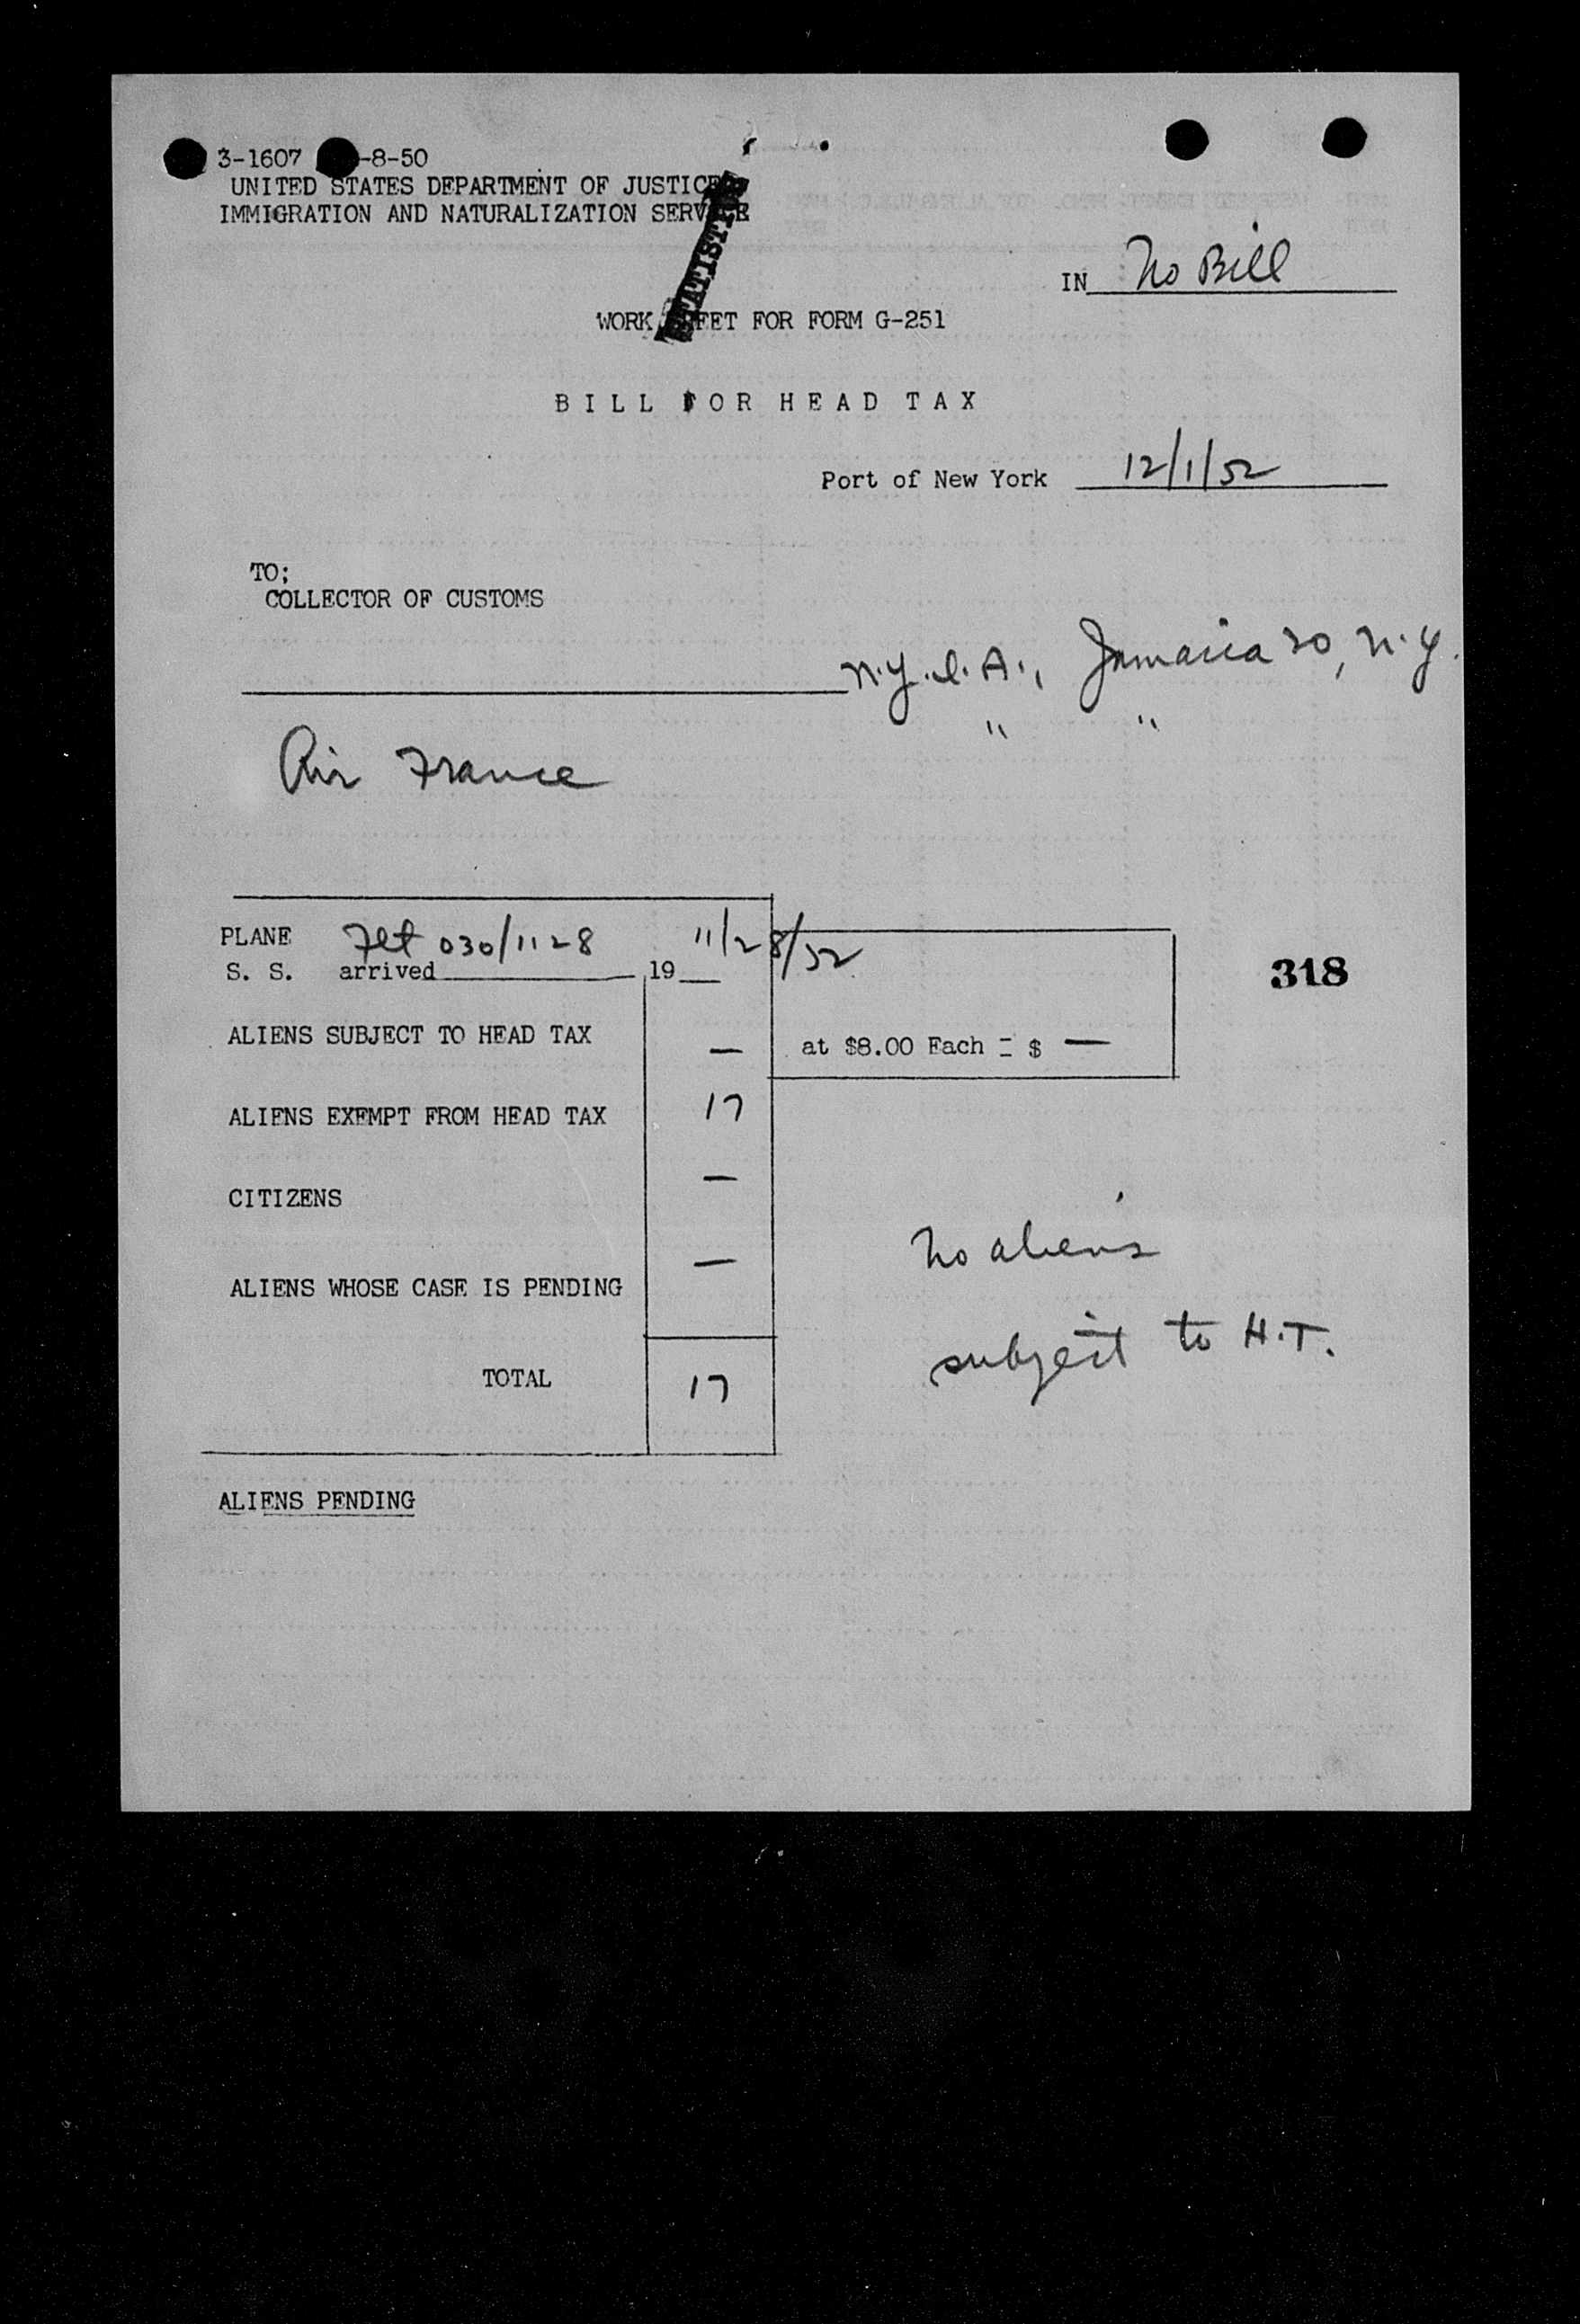 3-1607 -8-50
UNITED STATES DEPARTMENT OF JUSTICE
IMMIGRATION AND NATURALIZATION SERVICE
IN No Bill
WORK SHEET FOR FORM G-251
BILL FOR HEAD TAX
Port of New York 12/1/52
TO;
COLLECTOR OF CUSTOMS
N.Y.I.A., Jamaica 30, N.Y.
" "
Air France
PLANE Flt 030/1128 11/28/52
S. S. arrived 19
318
ALIENS SUBJECT TO HEAD TAX — at $8.00 Each = $ —
ALIENS EXEMPT FROM HEAD TAX 17
CITIZENS —
No aliens
ALIENS WHOSE CASE IS PENDING —
subject to H.T.
TOTAL 17
ALIENS PENDING